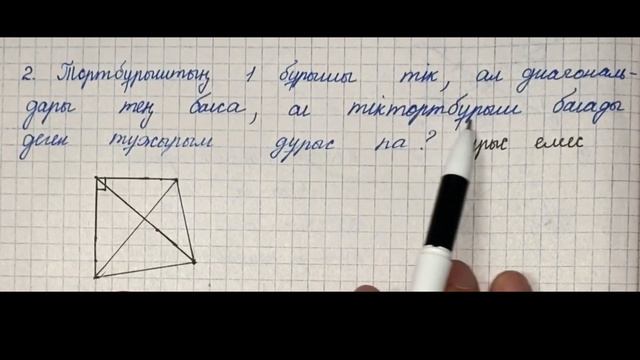 2. Төртбұрыштың 1 бұрышы тік, ал диагональ-
дары тең болса, ол тіктөртбұрыш болады
деген тұжырым дұрыс па? емес